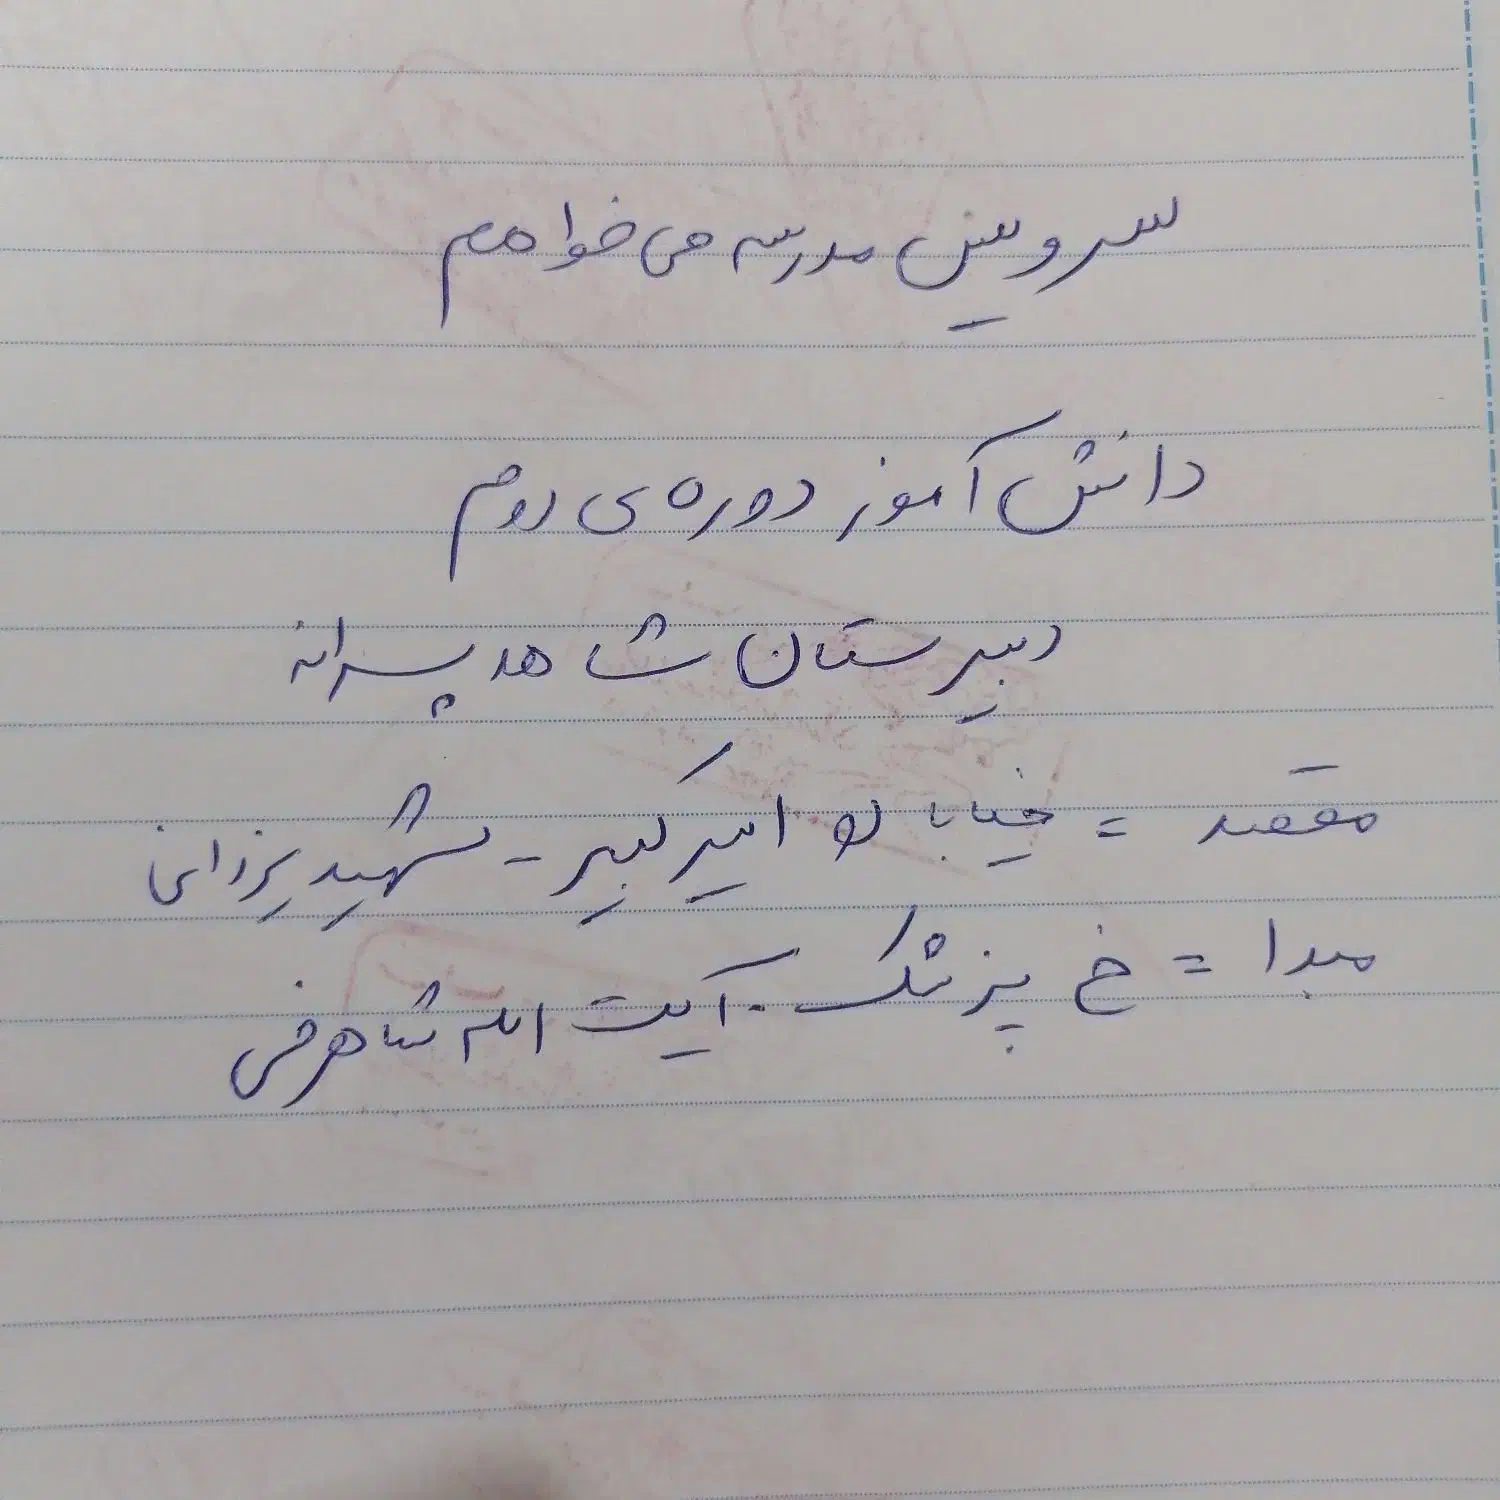 سرویس مدرسه می خواهم
دانش آموز دوره ی دوم
دبیرستان شاهد پسرانه
مقصد = خیابان امیرکبیر - شهید یزدانی
مبدا = خ پزشک - آیت الله شاهرخی